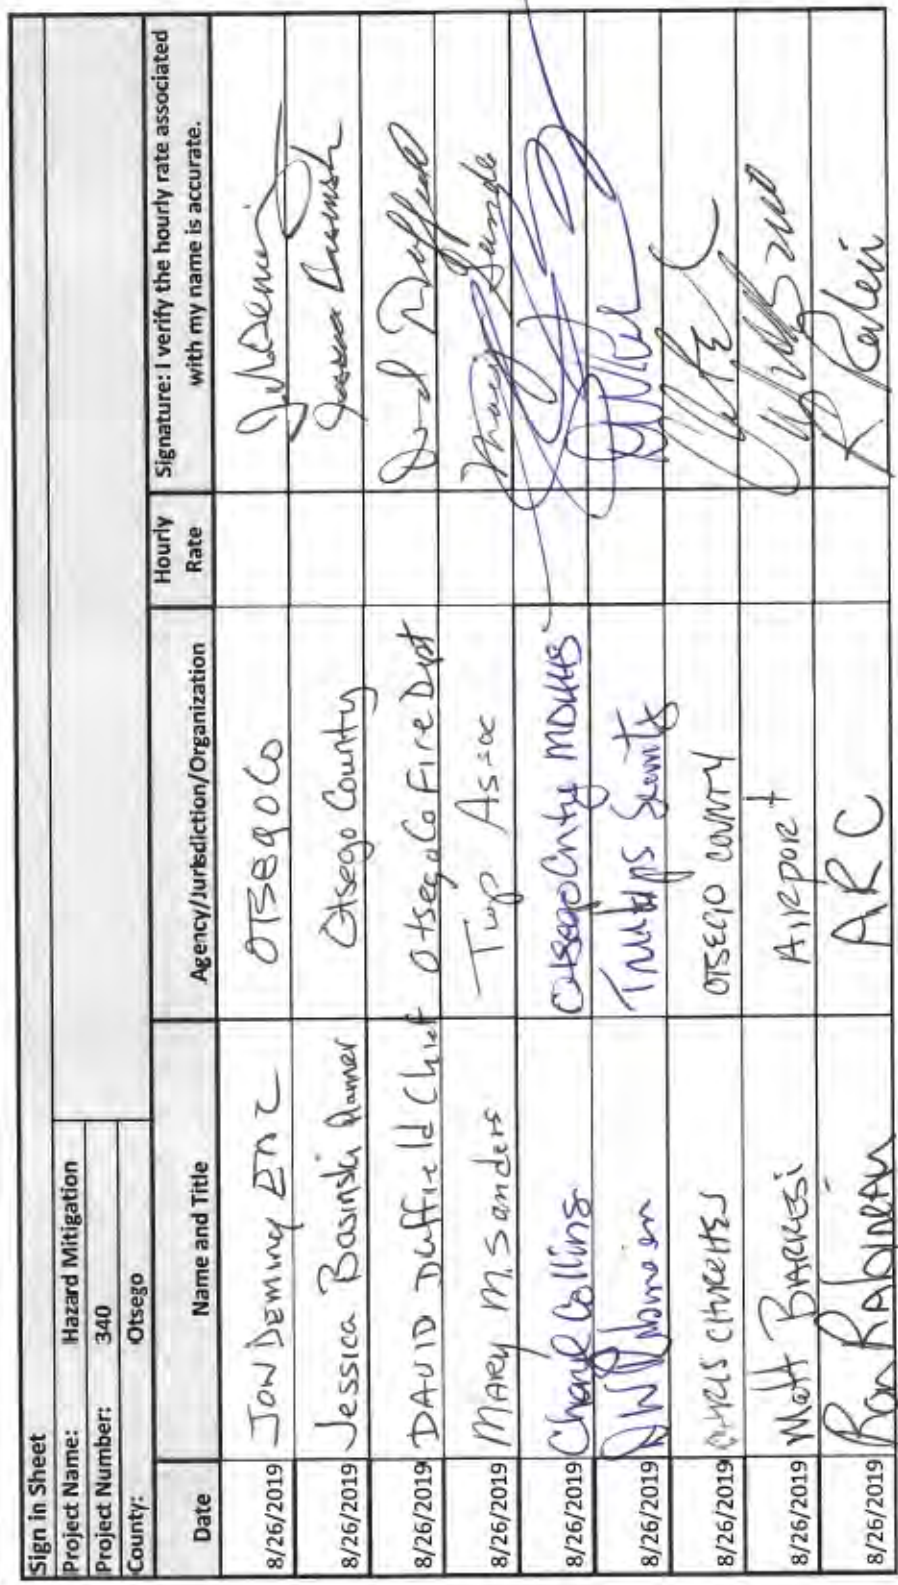 Sign in Sheet
Project Name: Hazard Mitigation
Project Number: 340
County: Otsego
Date Name and Title Agency/Jurisdiction/Organization Hourly Rate Signature: I verify the hourly rate associated with my name is accurate.
8/26/2019 JON DEMING OTSEGO CO
8/26/2019 Jessica Basinski Otsego County
8/26/2019 DAVID DUFFIELD Chief Otsego Co Fire Dept David Duffield
8/26/2019 MARY M. Sanders Twp Assoc Mary Sanders
8/26/2019 Cheryl Collins Otsego Cnty MDHHS
8/26/2019
8/26/2019 CHRIS CHURCHES OTSEGO COUNTY
8/26/2019 Matt BARRESI AIRPORT
8/26/2019 Ron RABINEAU ARC